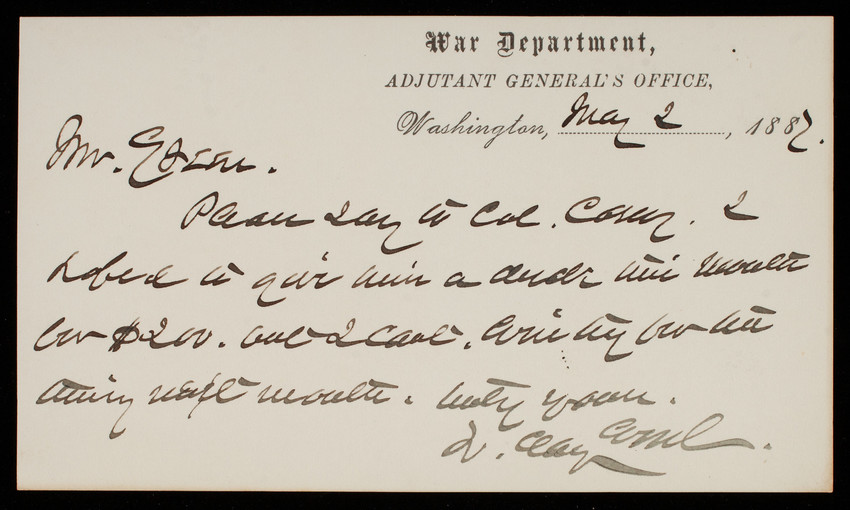 War Department,
ADJUTANT GENERAL'S OFFICE,
Washington, May 2, 1887.
Mr.
Please Say to Col. Casey. I
hoped to give him a check this Month
for $200. but I can't. Will try for the
thing next month. truly yours.
Clay